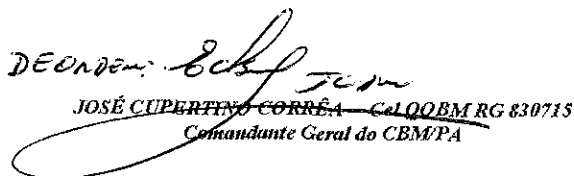 DE ORDEM:
JOSÉ CUPERTINO CORRÊA – Cel QOBM RG 830715
Comandante Geral do CBM/PA